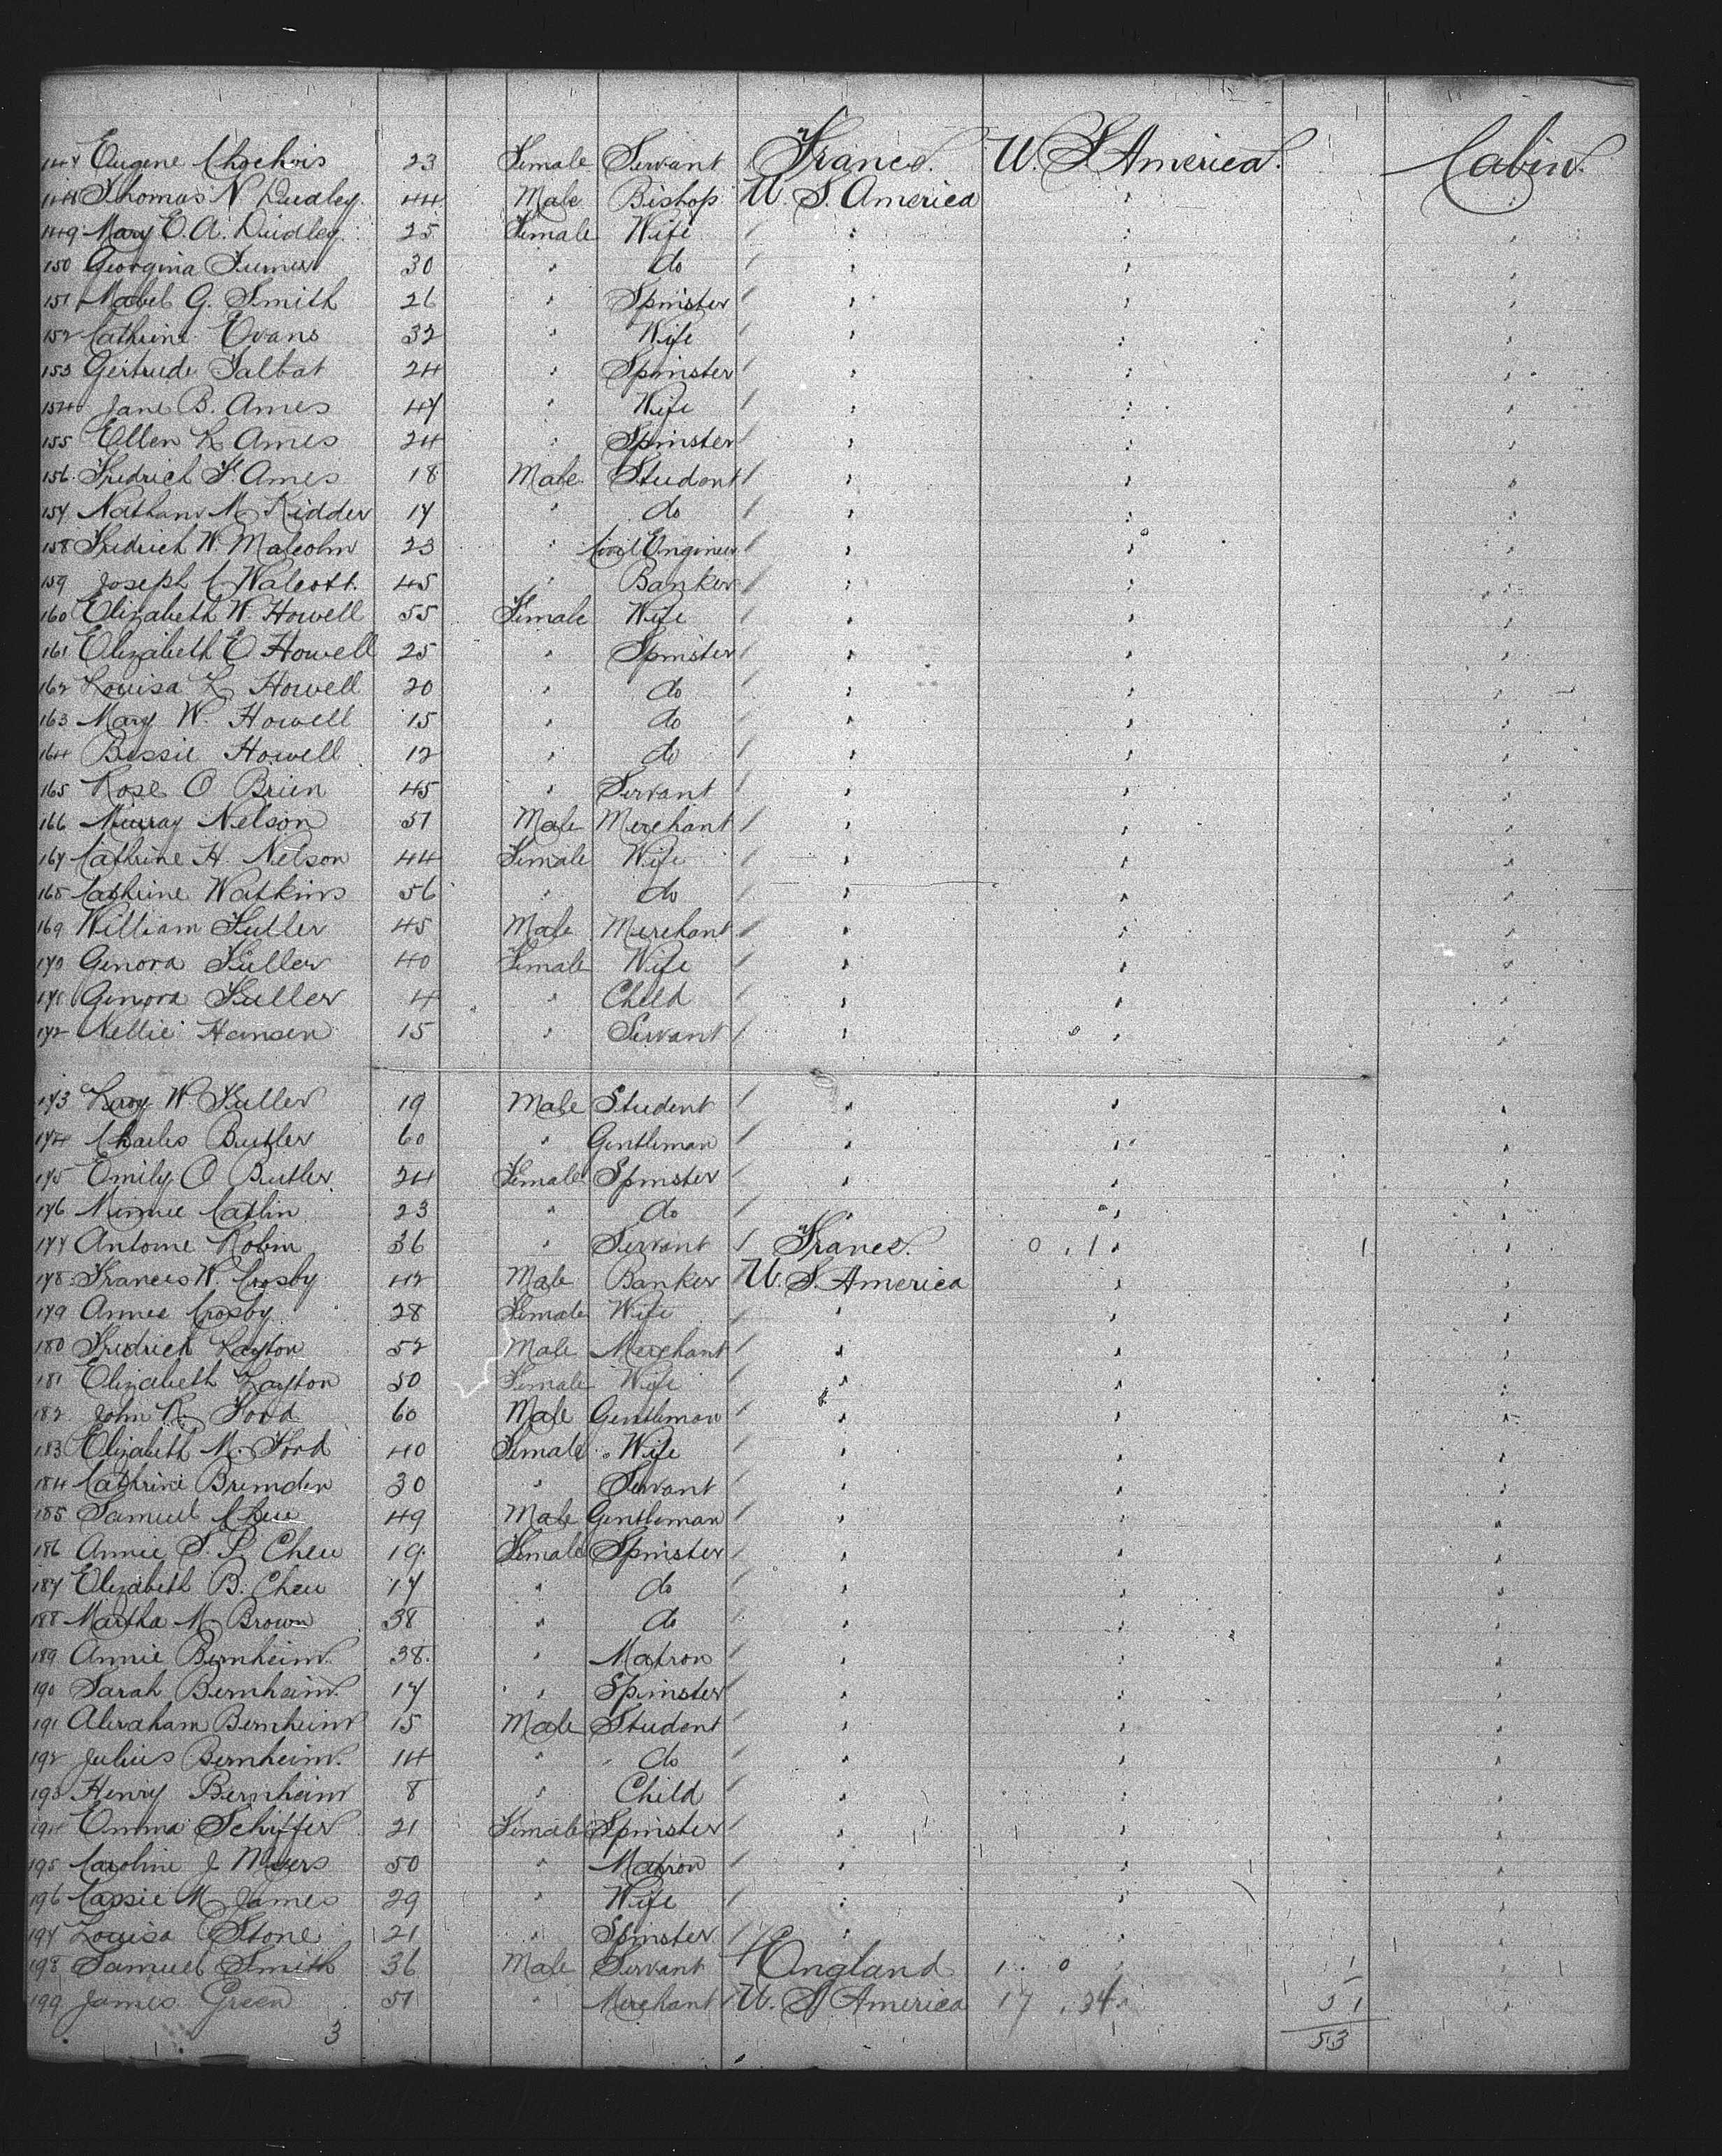 147 Eugene Chochois 23 Female Servant France. U. S America. Cabin.
148 Thomas N. Dudley. 44 Male Bishop U. S. America "
149 Mary E. A. Dudley. 25 Female Wife / " " "
150 Georgina 30 " do / " " "
151 Mabel G. Smith 26 " Spinster / " " "
152 Cathrine Evans 32 " Wife / " " "
153 Gertrude Talbat 24 " Spinster / " " "
154 Jane B. Ames 47 " Wife / " " "
155 Ellen L Ames 24 " Spinster / " " "
156. Fredrich F. Ames 18 Male Student / " " "
157 Nathan M Kidder 17 " do / " " "
158 Fredrich W. Malcolm 23 " Civil Engineer / " " "
159 Joseph C Walcott. 45 " Banker / " " "
160 Elizabeth W. Howell 55 Female Wife / " " "
161 Elizabeth E Howell 25 " Spinster / " " "
162 Louisa L Howell 20 " do / " " "
163 Mary W. Howell 15 " do / " " "
164 Bessie Howell 12 " do / " " "
165 Rose O Brien 45 " Servant / " " "
166 Murray Nelson 51 Male Merchant / " " "
167 Cathrine H. Nelson 44 Female Wife / " " "
168 Cathrine Watkins 56 " do / " " "
169 William Fuller 45 Male Merchant / " " "
170 Genora Fuller 40 Female Wife / " " "
171 Genora Fuller 4 " Child / " " "
172 Nellie Hansen 15 " Servant / " " "
173 Leroy W. Fuller 19 Male Student / " " "
174 Charles Butler 60 " Gentleman / " " "
175 Emily O Butler 24 Female Spinster / " " "
176 Minnie Catlin 23 " do / " " "
177 Antoine Robin 36 " Servant / France. 0 . 1 " 1 "
178. Frances W. Crosby 42 Male Banker / U. S. America " "
179 Annie Crosby 28 Female Wife / " " "
180 Fredrich Layton 52 Male Merchant / " " "
181 Elizabeth Layton 50 Female Wife / " " "
182. John R. Ford 60 Male Gentleman / " " "
183 Elizabeth M. Ford 40 Female Wife / " " "
184 Cathrine Bremden 30 " Servant / " " "
185 Samuel Chew 49 Male Gentleman / " " "
186 Annie S. P. Chew 19. Female Spinster / " " "
187 Elizabeth B. Chew 17 " do / " " "
188 Martha M Brown 38 " do / " " "
189 Annie Bernheim. 38. " Matron / " " "
190 Sarah Bernheim. 17 " Spinster / " " "
191 Abraham Bernheim 15 Male Student / " " "
192 Julius Bernheim. 14 " do / " " "
193 Henry Bernheim 8 " Child / " " "
194 Emma Schiffer 21 Female Spinster / " " "
195 Caroline J Myers 50 " Matron / " " "
196 Cassie M James 29 " Wife / " " "
197 Louisa Stone 21 " Spinster / " " "
198 Samuel Smith 36 Male Servant England 1 . 0 " 1 "
199 James Green 51 " Merchant / U. S America 17 . 34 " 51 "
3 53